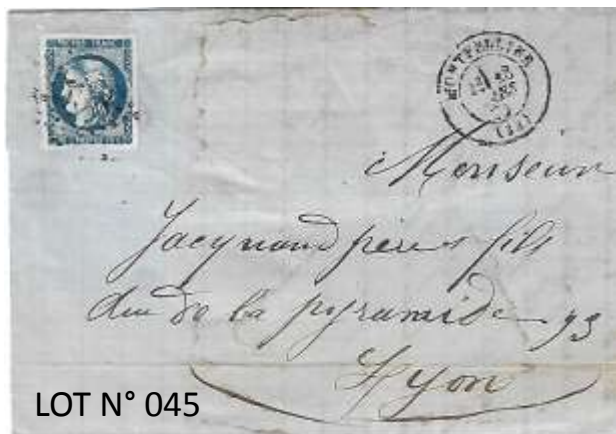 MONTPELLIER
Monsieur
Jacquand père & fils
rue de la pyramide 93
Lyon
LOT N° 045